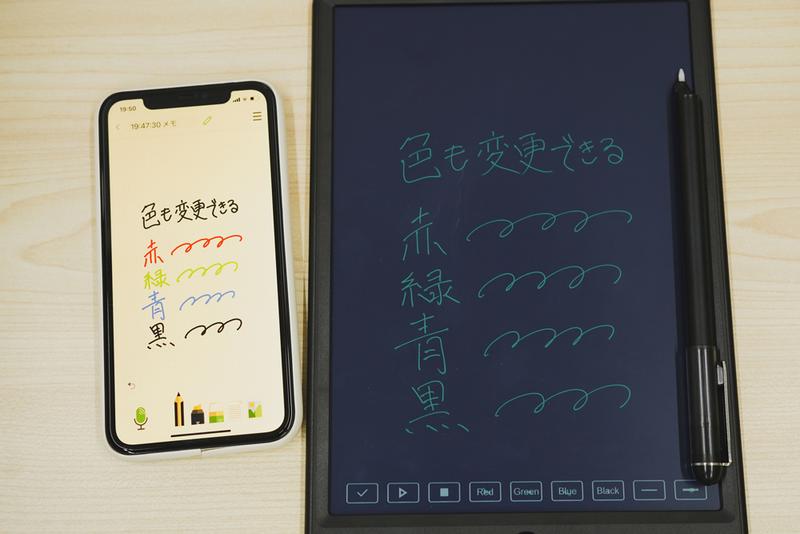 19:50
19:47:30 メモ
色も変更できる
赤
緑
青
黒
色も変更できる
赤
緑
青
黒
Red Green Blue Black